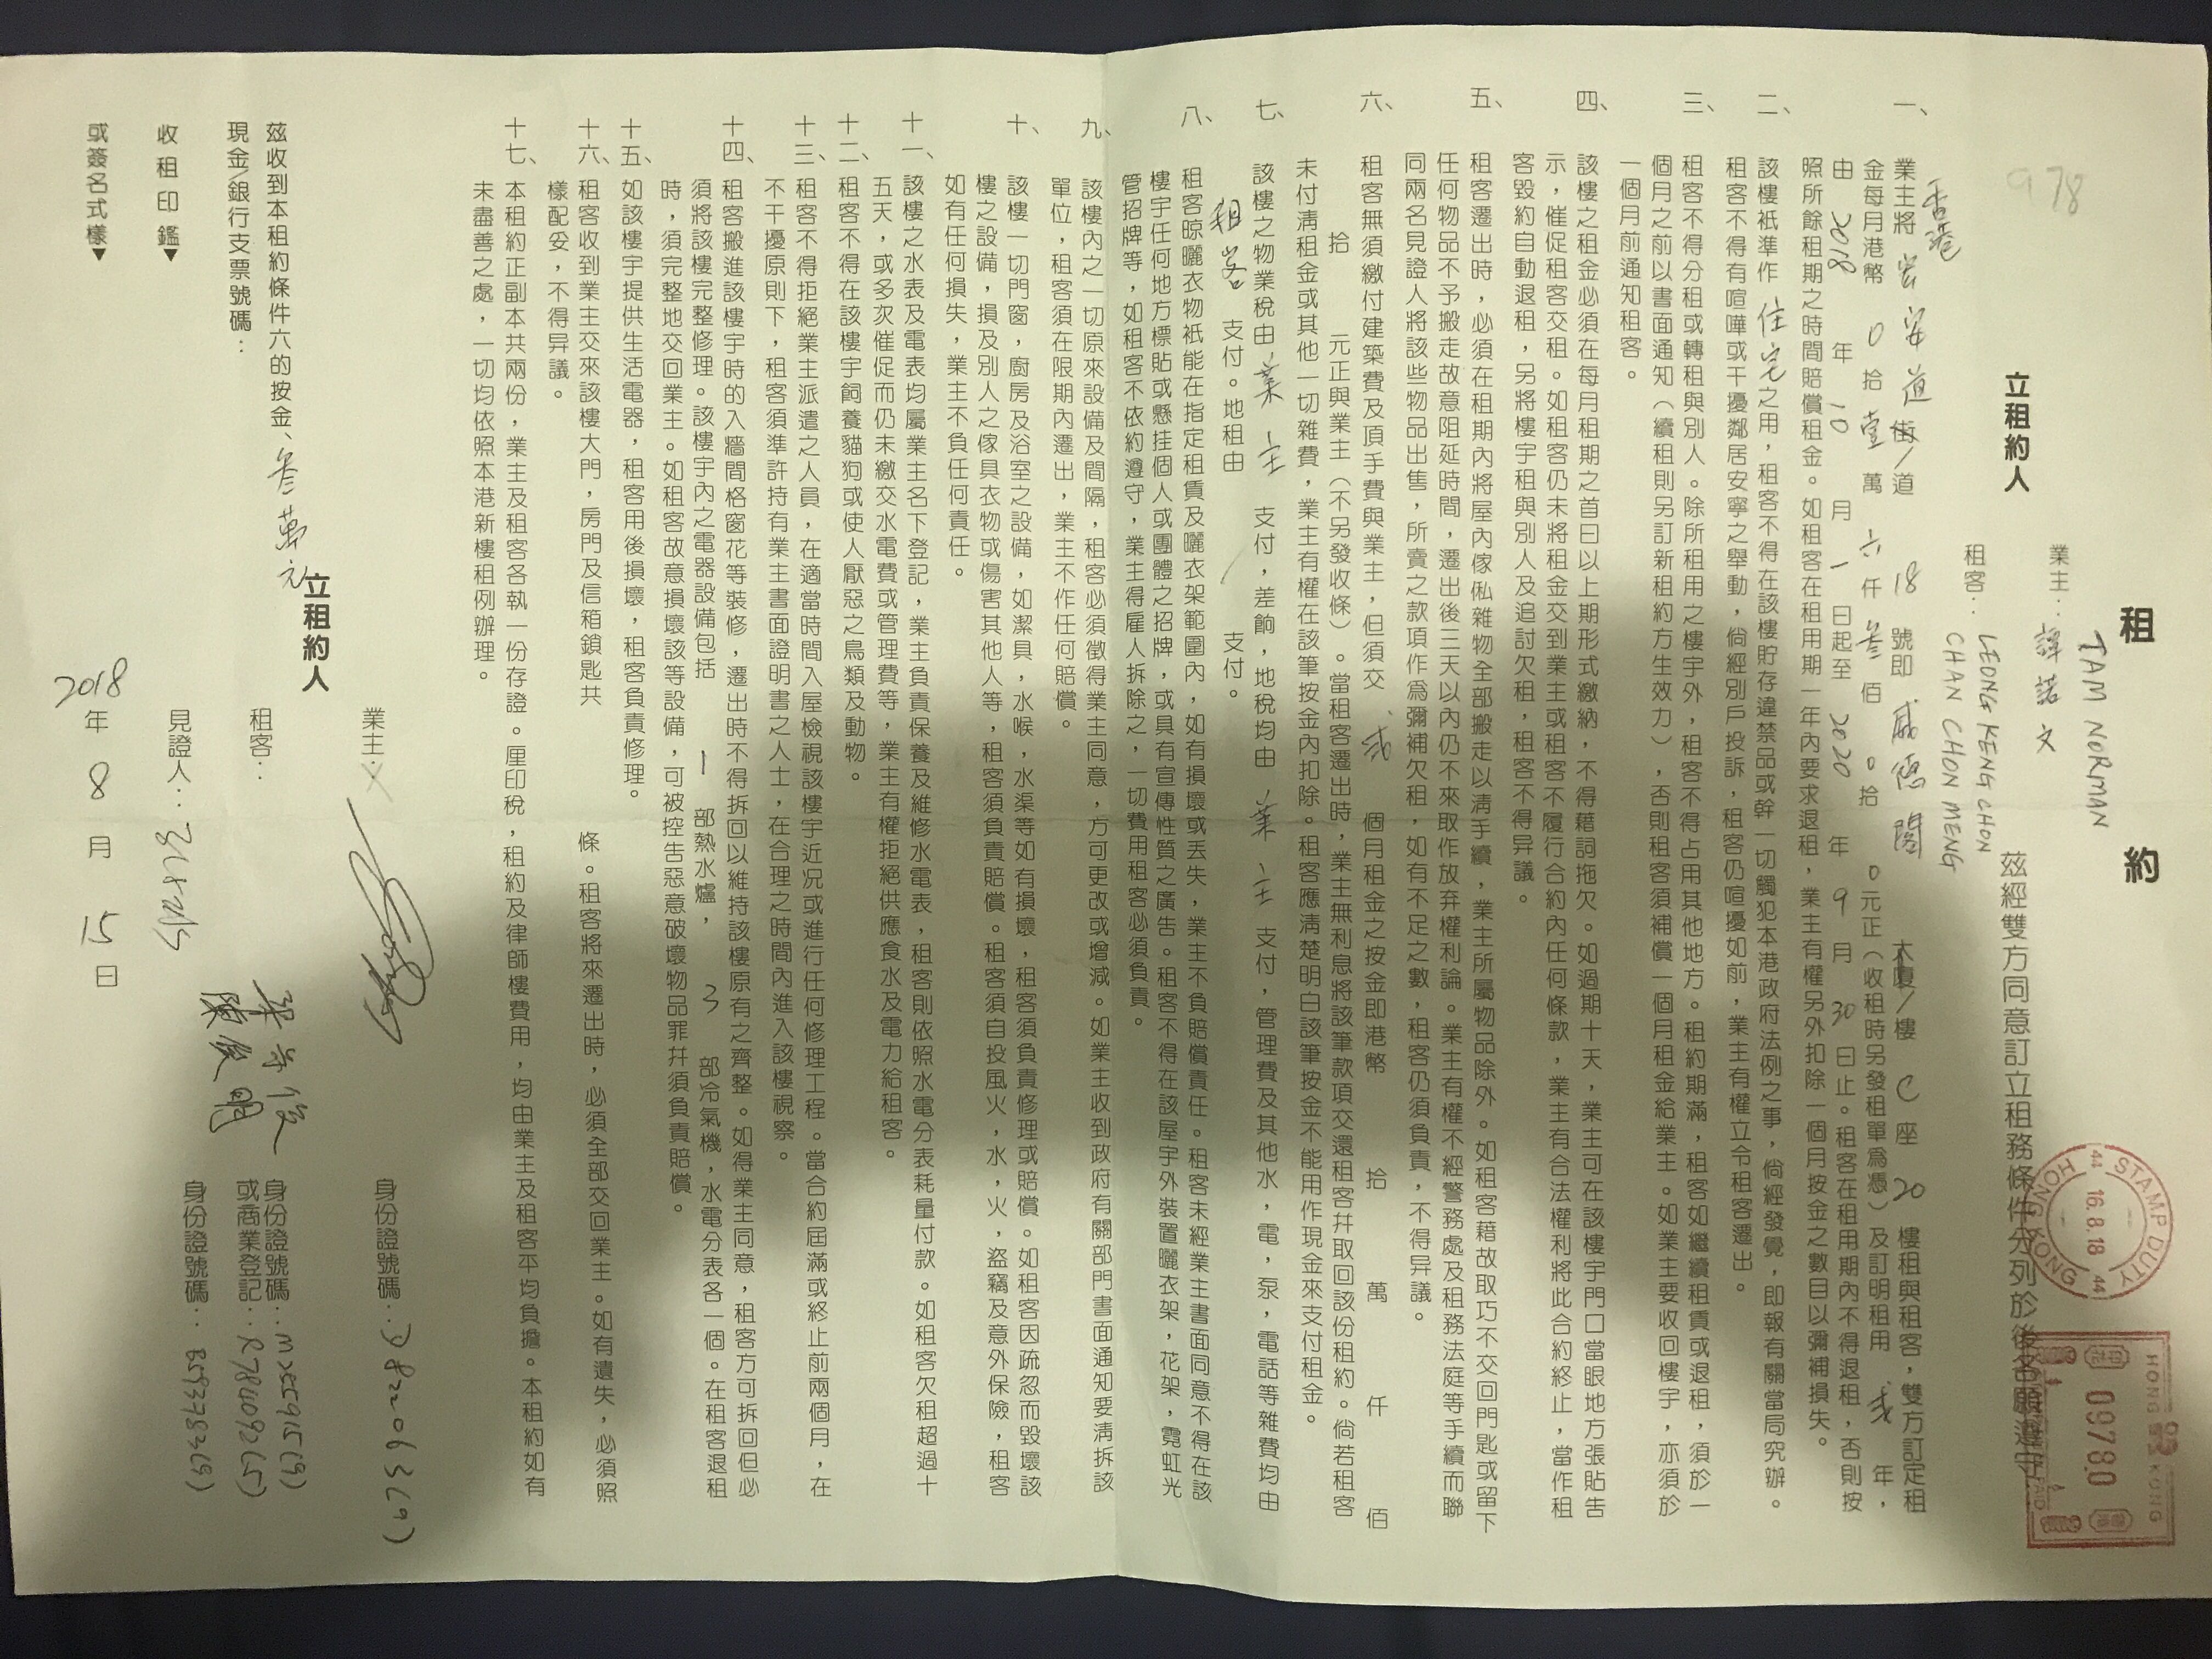 租約
立租約人
業主：TAM NORMAN
譚諾文
租客：LEONG KENG CHON
CHAN CHON MENG
茲經雙方同意訂立租務條件分列於後各願遵守
978
STAMP DUTY
44 16.8.18 44
HONG KONG
HONG KONG
09780
香港
一、業主將宏安道街／道 18 號即威德閣大廈／樓 C 座 20 樓租與租客，雙方訂定租
金每月港幣 0 拾壹萬六仟叁佰 0 拾 0 元正（收租時另發租單爲憑）及訂明租用貳年，
由 2018 年 10 月 1 日起至 2020 年 9 月 30 日止。租客在租用期內不得退租，否則按
照所餘租期之時間賠償租金。如租客在租用期一年內要求退租，業主有權另外扣除一個月按金之數目以彌補損失。
二、該樓衹準作住宅之用，租客不得在該樓貯存違禁品或幹一切觸犯本港政府法例之事，倘經發覺，即報有關當局究辦。
租客不得有喧嘩或干擾鄰居安寧之舉動，倘經別戶投訴，租客仍喧擾如前，業主有權立令租客遷出。
三、租客不得分租或轉租與別人。除所租用之樓宇外，租客不得占用其他地方。租約期滿，租客如繼續租賃或退租，須於一
個月之前以書面通知（續租則另訂新租約方生效力），否則租客須補償一個月租金給業主。如業主要收回樓宇，亦須於
一個月前通知租客。
四、該樓之租金必須在每月租期之首日以上期形式繳納，不得藉詞拖欠。如過期十天，業主可在該樓宇門口當眼地方張貼告
示，催促租客交租。如租客仍未將租金交到業主或租客不履行合約內任何條款，業主有合法權利將此合約終止，當作租
客毀約自動退租，另將樓宇租與別人及追討欠租，租客不得异議。
五、租客遷出時，必須在租期內將屋內傢俬雜物全部搬走以清手續，業主所屬物品除外。如租客藉故取巧不交回門匙或留下
任何物品不予搬走故意阻延時間，遷出後三天以內仍不來取作放弃權利論。業主有權不經警務處及租務法庭等手續而聯
同兩名見證人將該些物品出售，所賣之款項作爲彌補欠租，如有不足之數，租客仍須負責，不得异議。
六、租客無須繳付建築費及頂手費與業主，但須交貳個月租金之按金即港幣 拾 萬 仟 佰
拾 元正與業主（不另發收條）。當租客遷出時，業主無利息將該筆款項交還租客幷取回該份租約。倘若租客
未付清租金或其他一切雜費，業主有權在該筆按金內扣除。租客應清楚明白該筆按金不能用作現金來支付租金。
七、該樓之物業稅由業主支付，差餉，地稅均由業主支付，管理費及其他水，電，泵，電話等雜費均由
租客支付。地租由／支付。
八、租客晾曬衣物衹能在指定租賃及曬衣架範圍內，如有損壞或丟失，業主不負賠償責任。租客未經業主書面同意不得在該
樓宇任何地方標貼或懸挂個人或團體之招牌，或具有宣傳性質之廣告。租客不得在該屋宇外裝置曬衣架，花架，霓虹光
管招牌等，如租客不依約遵守，業主得雇人拆除之，一切費用租客必須負責。
九、該樓內之一切原來設備及間隔，租客必須徵得業主同意，方可更改或增減。如業主收到政府有關部門書面通知要清拆該
單位，租客須在限期內遷出，業主不作任何賠償。
十、該樓一切門窗，廚房及浴室之設備，如潔具，水喉，水渠等如有損壞，租客須負責修理或賠償。如租客因疏忽而毀壞該
樓之設備，損及別人之傢具衣物或傷害其他人等，租客須負責賠償。租客須自投風火，水，火，盜竊及意外保險，租客
如有任何損失，業主不負任何責任。
十一、該樓之水表及電表均屬業主名下登記，業主負責保養及維修水電表，租客則依照水電分表耗量付款。如租客欠租超過十
五天，或多次催促而仍未繳交水電費或管理費等，業主有權拒絕供應食水及電力給租客。
十二、租客不得在該樓宇飼養貓狗或使人厭惡之鳥類及動物。
十三、租客不得拒絕業主派遣之人員，在適當時間入屋檢視該樓宇近況或進行任何修理工程。當合約屆滿或終止前兩個月，在
不干擾原則下，租客須準許持有業主書面證明書之人士，在合理之時間內進入該樓視察。
十四、租客搬進該樓宇時的入牆間格窗花等裝修，遷出時不得拆回以維持該樓原有之齊整。如得業主同意，租客方可拆回但必
須將該樓完整修理。該樓宇內之電器設備包括 1 部熱水爐，3 部冷氣機，水電分表各一個。在租客退租
時，須完整地交回業主。如租客故意損壞該等設備，可被控告惡意破壞物品罪幷須負責賠償。
十五、如該樓宇提供生活電器，租客用後損壞，租客負責修理。
十六、租客收到業主交來該樓大門，房門及信箱鎖匙共 條。租客將來遷出時，必須全部交回業主。如有遺失，必須照
樣配妥，不得异議。
十七、本租約正副本共兩份，業主及租客各執一份存證。厘印稅，租約及律師樓費用，均由業主及租客平均負擔。本租約如有
未盡善之處，一切均依照本港新樓租例辦理。
立租約人
業主：X 身份證號碼：D822063(9)
茲收到本租約條件六的按金、叁萬元
現金／銀行支票號碼：
租客： 身份證號碼：MXEC915(9)
陳俊明 或商業登記：R786092(5)
收租印鑑▼
見證人： 身份證號碼：B593783(9)
或簽名式樣▼
2018 年 8 月 15 日